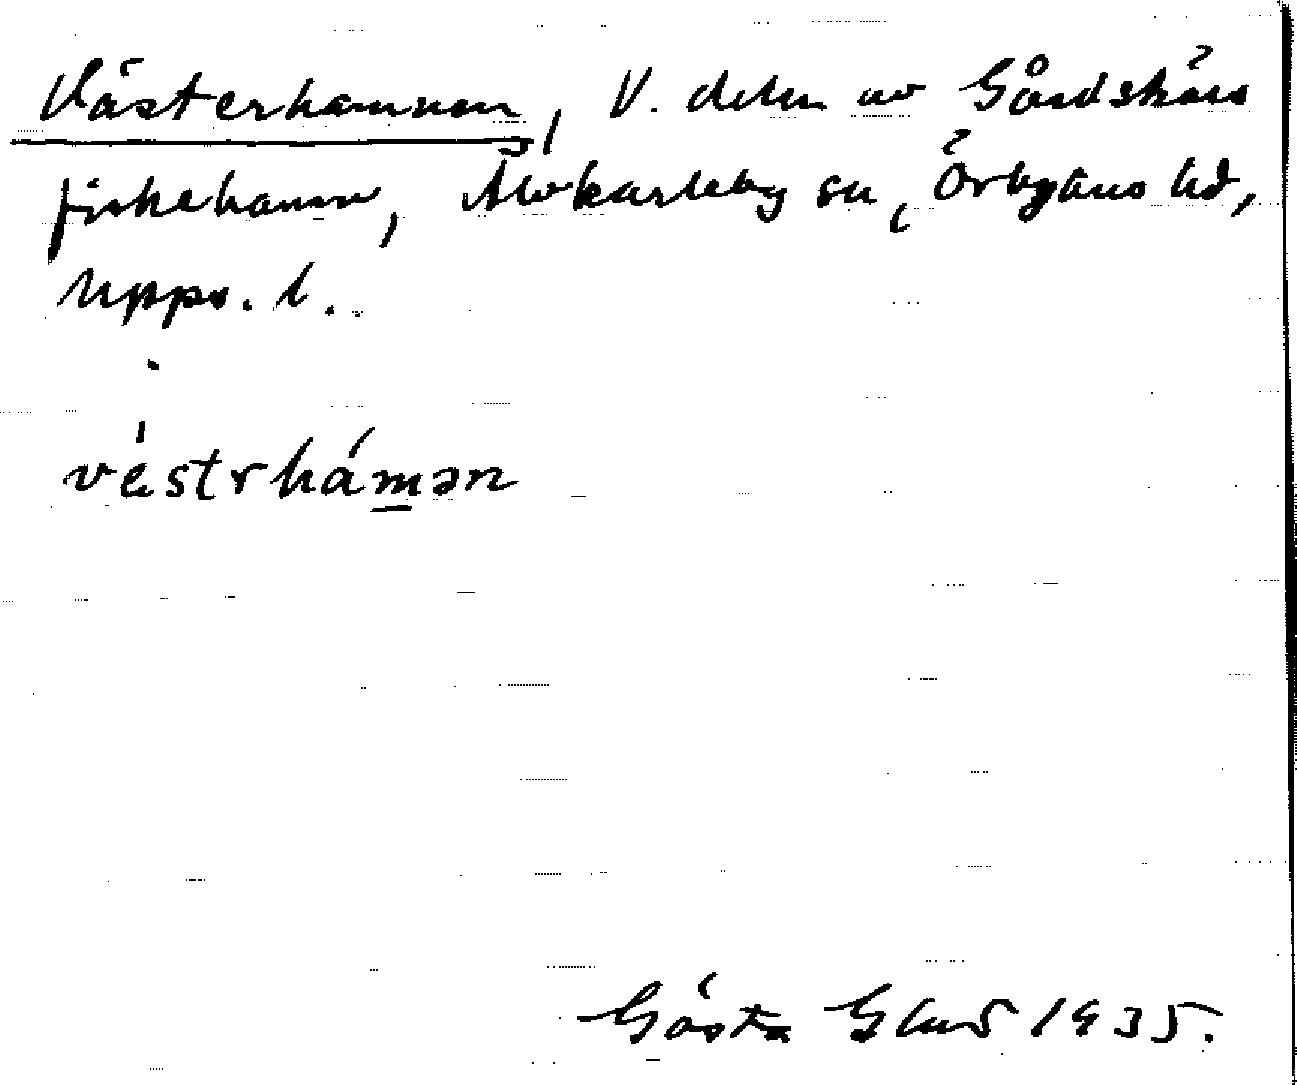 Västerhamnen, V. delen av Gårdskärs
fiskehamn, Älvkarleby sn, Örbyhus hd,
Upps. l.
véstrhámən
Gösta
1935.